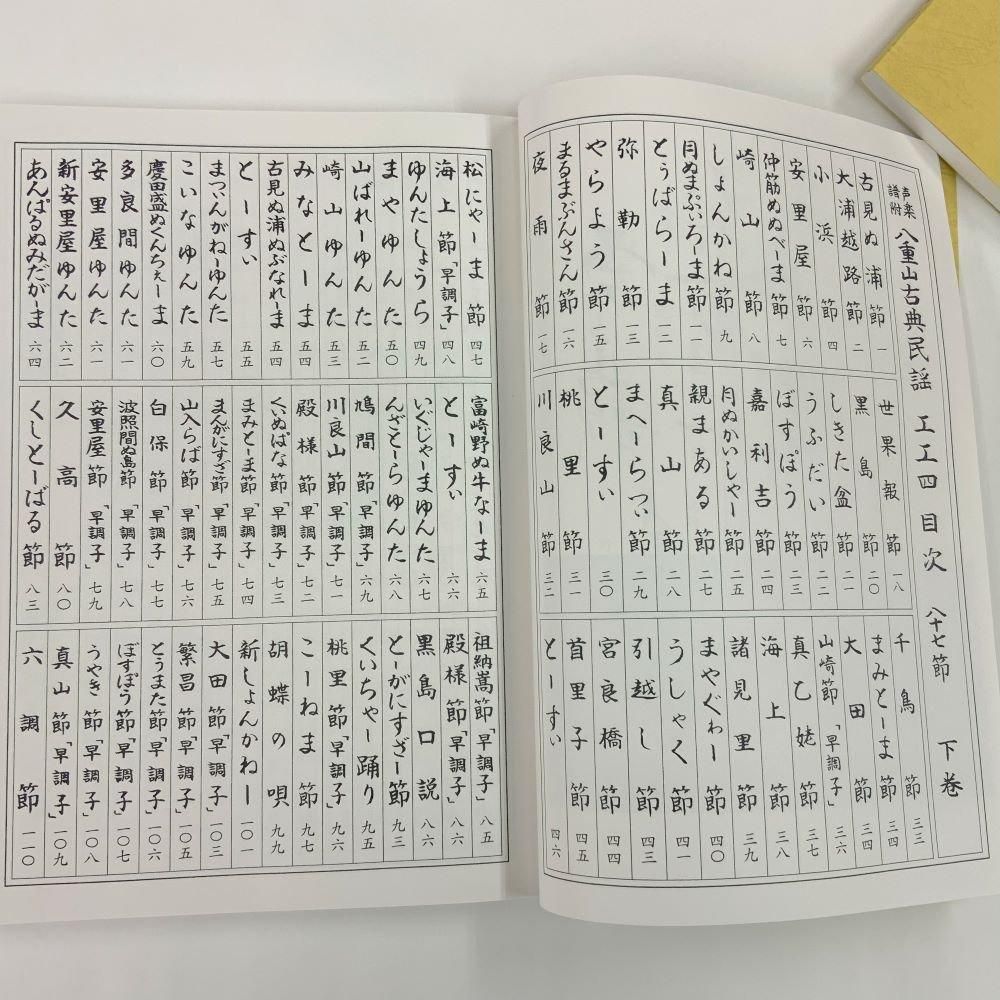 声楽譜附 八重山古典民謡 工工四 目次 八十七節 下巻
古見ぬ浦節 一
大浦越路節 二
小浜節 四
安里屋節 六
仲筋ぬぬべーま節 七
崎山節 八
しょんかね節 九
月ぬまぷぃろーま節 一一
とぅばらーま 一二
弥勒節 一三
やらよう節 一五
まるまぶんさん節 一六
夜雨節 一七
世果報節 一八
黒島節 二〇
しきた盆 二一
うふだい節 二二
ぼすぽう節 二三
嘉利吉節 二四
月ぬかいしゃー節 二五
親まある節 二七
真山節 二八
まへーらつぃ節 二九
とーすぃ 三〇
桃里節 三一
川良山節 三二
千鳥節 三三
まみとーま節 三四
大田節 三四
山崎節「早調子」 三六
真乙姥節 三七
海上節 三八
諸見里節 三九
まやぐゎー節 四〇
うしゃく節 四一
引越し節 四三
宮良橋節 四四
首里子節 四五
とーすぃ 四六
松にゃーま節 四七
海上節「早調子」 四八
ゆんたしょうら 四九
まやゆんた 五〇
山ばれーゆんた 五二
崎山ゆんた 五三
みなとーま 五四
古見ぬ浦ぬぶなれーま 五四
とーすぃ 五五
まつぃんがねーゆんた 五七
こいなゆんた 五九
慶田盛ぬくんちぇーま 六〇
多良間ゆんた 六一
安里屋ゆんた 六一
新安里屋ゆんた 六二
あんぱるぬみだがーま 六四
富崎野ぬ牛なーま 六五
とーすぃ 六六
いぐじゃーまゆんた 六七
んざとーらゆんた 六八
鳩間節「早調子」 六九
川良山節「早調子」 七一
殿様節「早調子」 七二
くいぬぱな節「早調子」 七三
まみとーま節「早調子」 七四
まんがにすざ節「早調子」 七五
山入らば節「早調子」 七六
白保節「早調子」 七七
波照間ぬ島節「早調子」 七八
安里屋節「早調子」 七九
久高節 八〇
くしとーばる節 八三
祖納嵩節「早調子」 八五
殿様節「早調子」 八六
黒島口説 八六
とーがにすざー節 九三
くいちゃー踊り 九五
桃里節「早調子」 九六
こーねま節 九七
胡蝶の唄 九九
新しょんかねー 一〇一
大田節「早調子」 一〇三
繁昌節「早調子」 一〇五
とぅまた節「早調子」 一〇六
ぼすぽう節「早調子」 一〇七
うやき節「早調子」 一〇八
真山節「早調子」 一〇九
六調節 一一〇